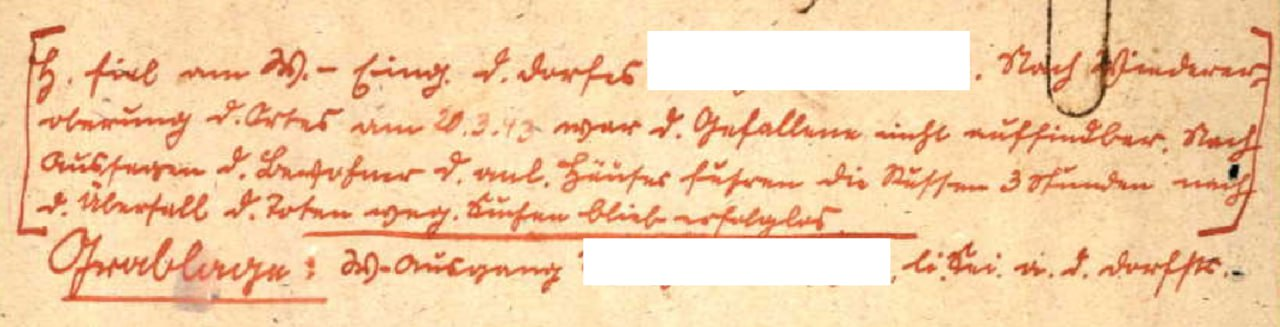 H. fiel am W.- Eing. d. Dorfes . Nach Wiederer-
oberung d. Ortes am 20.3.43 war d. Gefallene nicht auffindbar. Nach
Aussagen d. Bewohner d. anl. Häuser fuhren die Russen 3 Stunden nach
d. Überfall d. Toten weg. Suchen blieb erfolglos
Grablage: W-Ausgang , li. Sei. a. d. Dorfstr.